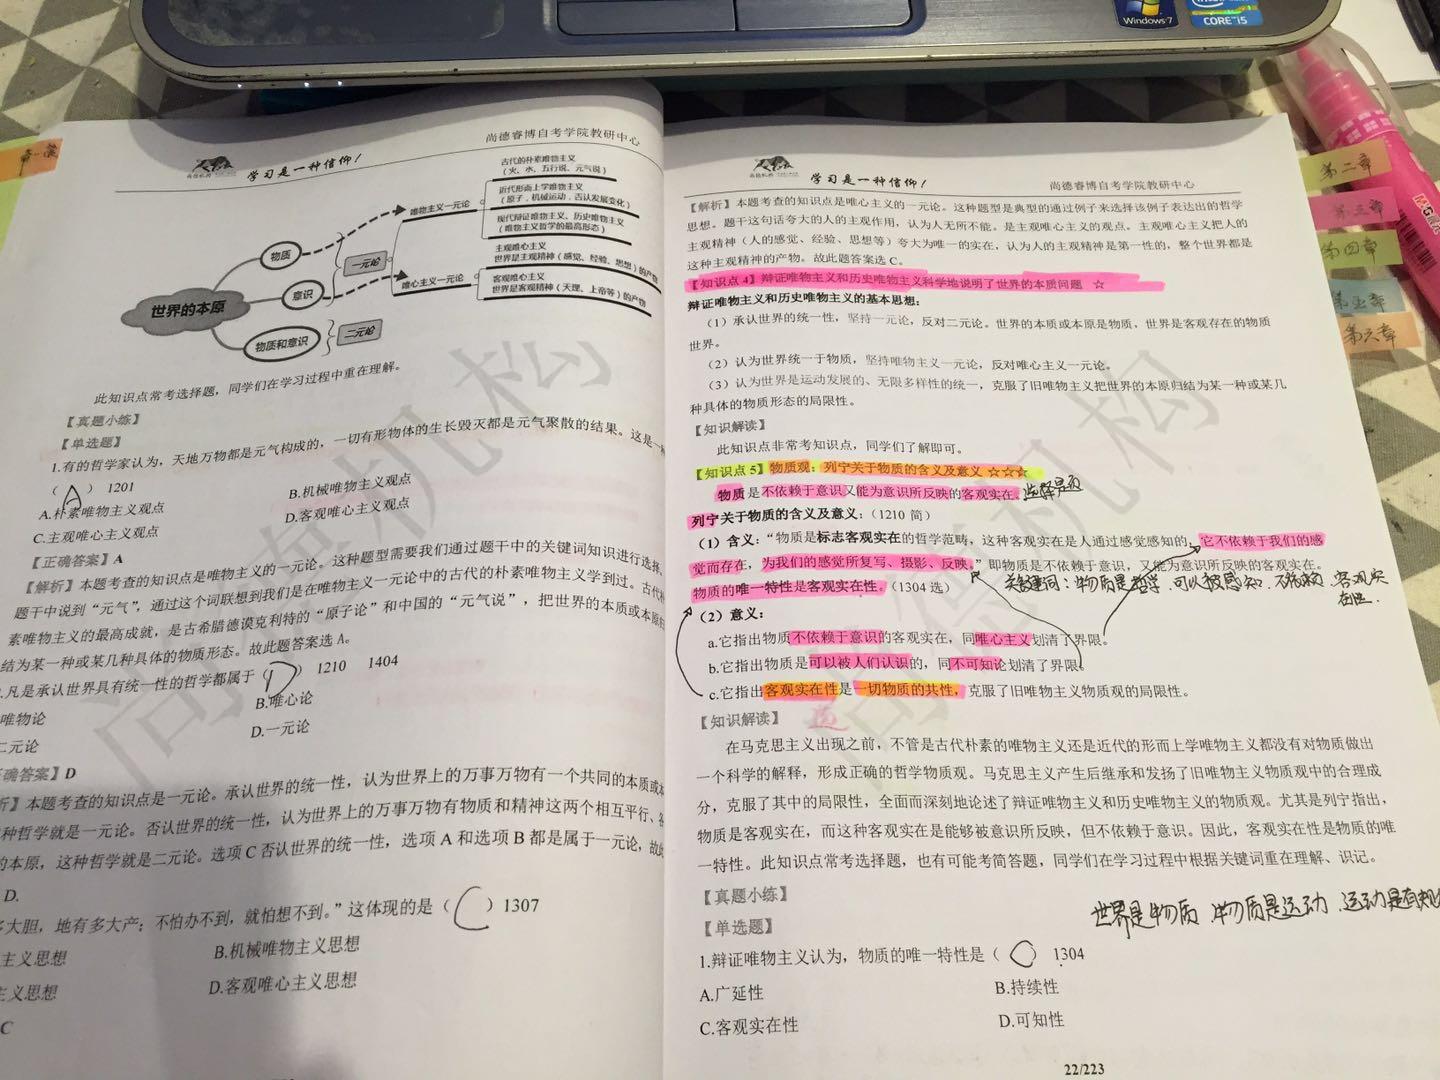 Windows 7
CORE i5
第一章
学习是一种信仰！
尚德睿博自考学院教研中心
世界的本原
物质
意识
物质和意识
一元论
二元论
唯物主义一元论
唯心主义一元论
古代的朴素唯物主义
（火、水、五行说、元气说）
近代形而上学唯物主义
（原子，机械运动，否认发展变化）
现代辩证唯物主义、历史唯物主义
（唯物主义哲学的最高形态）
主观唯心主义
世界是主观精神（感觉、经验、思想）的产物
客观唯心主义
世界是客观精神（天理、上帝等）的产物
此知识点常考选择题，同学们在学习过程中重在理解。
【真题小练】
【单选题】
1.有的哲学家认为，天地万物都是元气构成的，一切有形物体的生长毁灭都是元气聚散的结果。这是一种
（A） 1201
A.朴素唯物主义观点
B.机械唯物主义观点
C.主观唯心主义观点
D.客观唯心主义观点
【正确答案】A
【解析】本题考查的知识点是唯物主义的一元论。这种题型需要我们通过题干中的关键词知识进行选择。
题干中说到“元气”，通过这个词联想到我们是在唯物主义一元论中的古代的朴素唯物主义学到过。古代朴
素唯物主义的最高成就，是古希腊德谟克利特的“原子论”和中国的“元气说”，把世界的本质或本原归
结为某一种或某几种具体的物质形态。故此题答案选 A。
.凡是承认世界具有统一性的哲学都属于（D） 1210 1404
唯物论
B.唯心论
二元论
D.一元论
确答案】D
析】本题考查的知识点是一元论。承认世界的统一性，认为世界上的万事万物有一个共同的本质或本
种哲学就是一元论。否认世界的统一性，认为世界上的万事万物有物质和精神这两个相互平行、各
的本原，这种哲学就是二元论。选项 C 否认世界的统一性，选项 A 和选项 B 都是属于一元论，故此
D.
多大胆，地有多大产；不怕办不到，就怕想不到。”这体现的是（C）1307
主义思想
B.机械唯物主义思想
主义思想
D.客观唯心主义思想
C
学习是一种信仰！
尚德睿博自考学院教研中心
【解析】本题考查的知识点是唯心主义的一元论。这种题型是典型的通过例子来选择该例子表达出的哲学
思想。题干这句话夸大的人的主观作用，认为人无所不能。是主观唯心主义的观点。主观唯心主义把人的
主观精神（人的感觉、经验、思想等）夸大为唯一的实在，认为人的主观精神是第一性的，整个世界都是
这种主观精神的产物。故此题答案选 C。
【知识点 4】辩证唯物主义和历史唯物主义科学地说明了世界的本质问题 ☆
辩证唯物主义和历史唯物主义的基本思想：
（1）承认世界的统一性，坚持一元论，反对二元论。世界的本质或本原是物质，世界是客观存在的物质
世界。
（2）认为世界统一于物质，坚持唯物主义一元论，反对唯心主义一元论。
（3）认为世界是运动发展的、无限多样性的统一，克服了旧唯物主义把世界的本原归结为某一种或某几
种具体的物质形态的局限性。
【知识解读】
此知识点非常考知识点，同学们了解即可。
【知识点 5】物质观：列宁关于物质的含义及意义 ☆☆☆
物质是不依赖于意识又能为意识所反映的客观实在。选择题
列宁关于物质的含义及意义：（1210 简）
（1）含义：“物质是标志客观实在的哲学范畴，这种客观实在是人通过感觉感知的，它不依赖于我们的感
觉而存在，为我们的感觉所复写、摄影、反映。”即物质是不依赖于意识，又能为意识所反映的客观实在。
物质的唯一特性是客观实在性。（1304 选）
关键词：物质是哲学、可以被感知、不依赖、客观实
在性．
（2）意义：
a.它指出物质不依赖于意识的客观实在，同唯心主义划清了界限。
b.它指出物质是可以被人们认识的，同不可知论划清了界限。
c.它指出客观实在性是一切物质的共性，克服了旧唯物主义物质观的局限性。
【知识解读】
在马克思主义出现之前，不管是古代朴素的唯物主义还是近代的形而上学唯物主义都没有对物质做出
一个科学的解释，形成正确的哲学物质观。马克思主义产生后继承和发扬了旧唯物主义物质观中的合理成
分，克服了其中的局限性，全面而深刻地论述了辩证唯物主义和历史唯物主义的物质观。尤其是列宁指出，
物质是客观实在，而这种客观实在是能够被意识所反映，但不依赖于意识。因此，客观实在性是物质的唯
一特性。此知识点常考选择题，也有可能考简答题，同学们在学习过程中根据关键词重在理解、识记。
【真题小练】
世界是物质、物质是运动、运动是有规
【单选题】
1.辩证唯物主义认为，物质的唯一特性是（C 1304
A.广延性
B.持续性
C.客观实在性
D.可知性
22/223
第二章
第三章
第四章
第五章
第六章
M&G
尚德机构
尚德机构